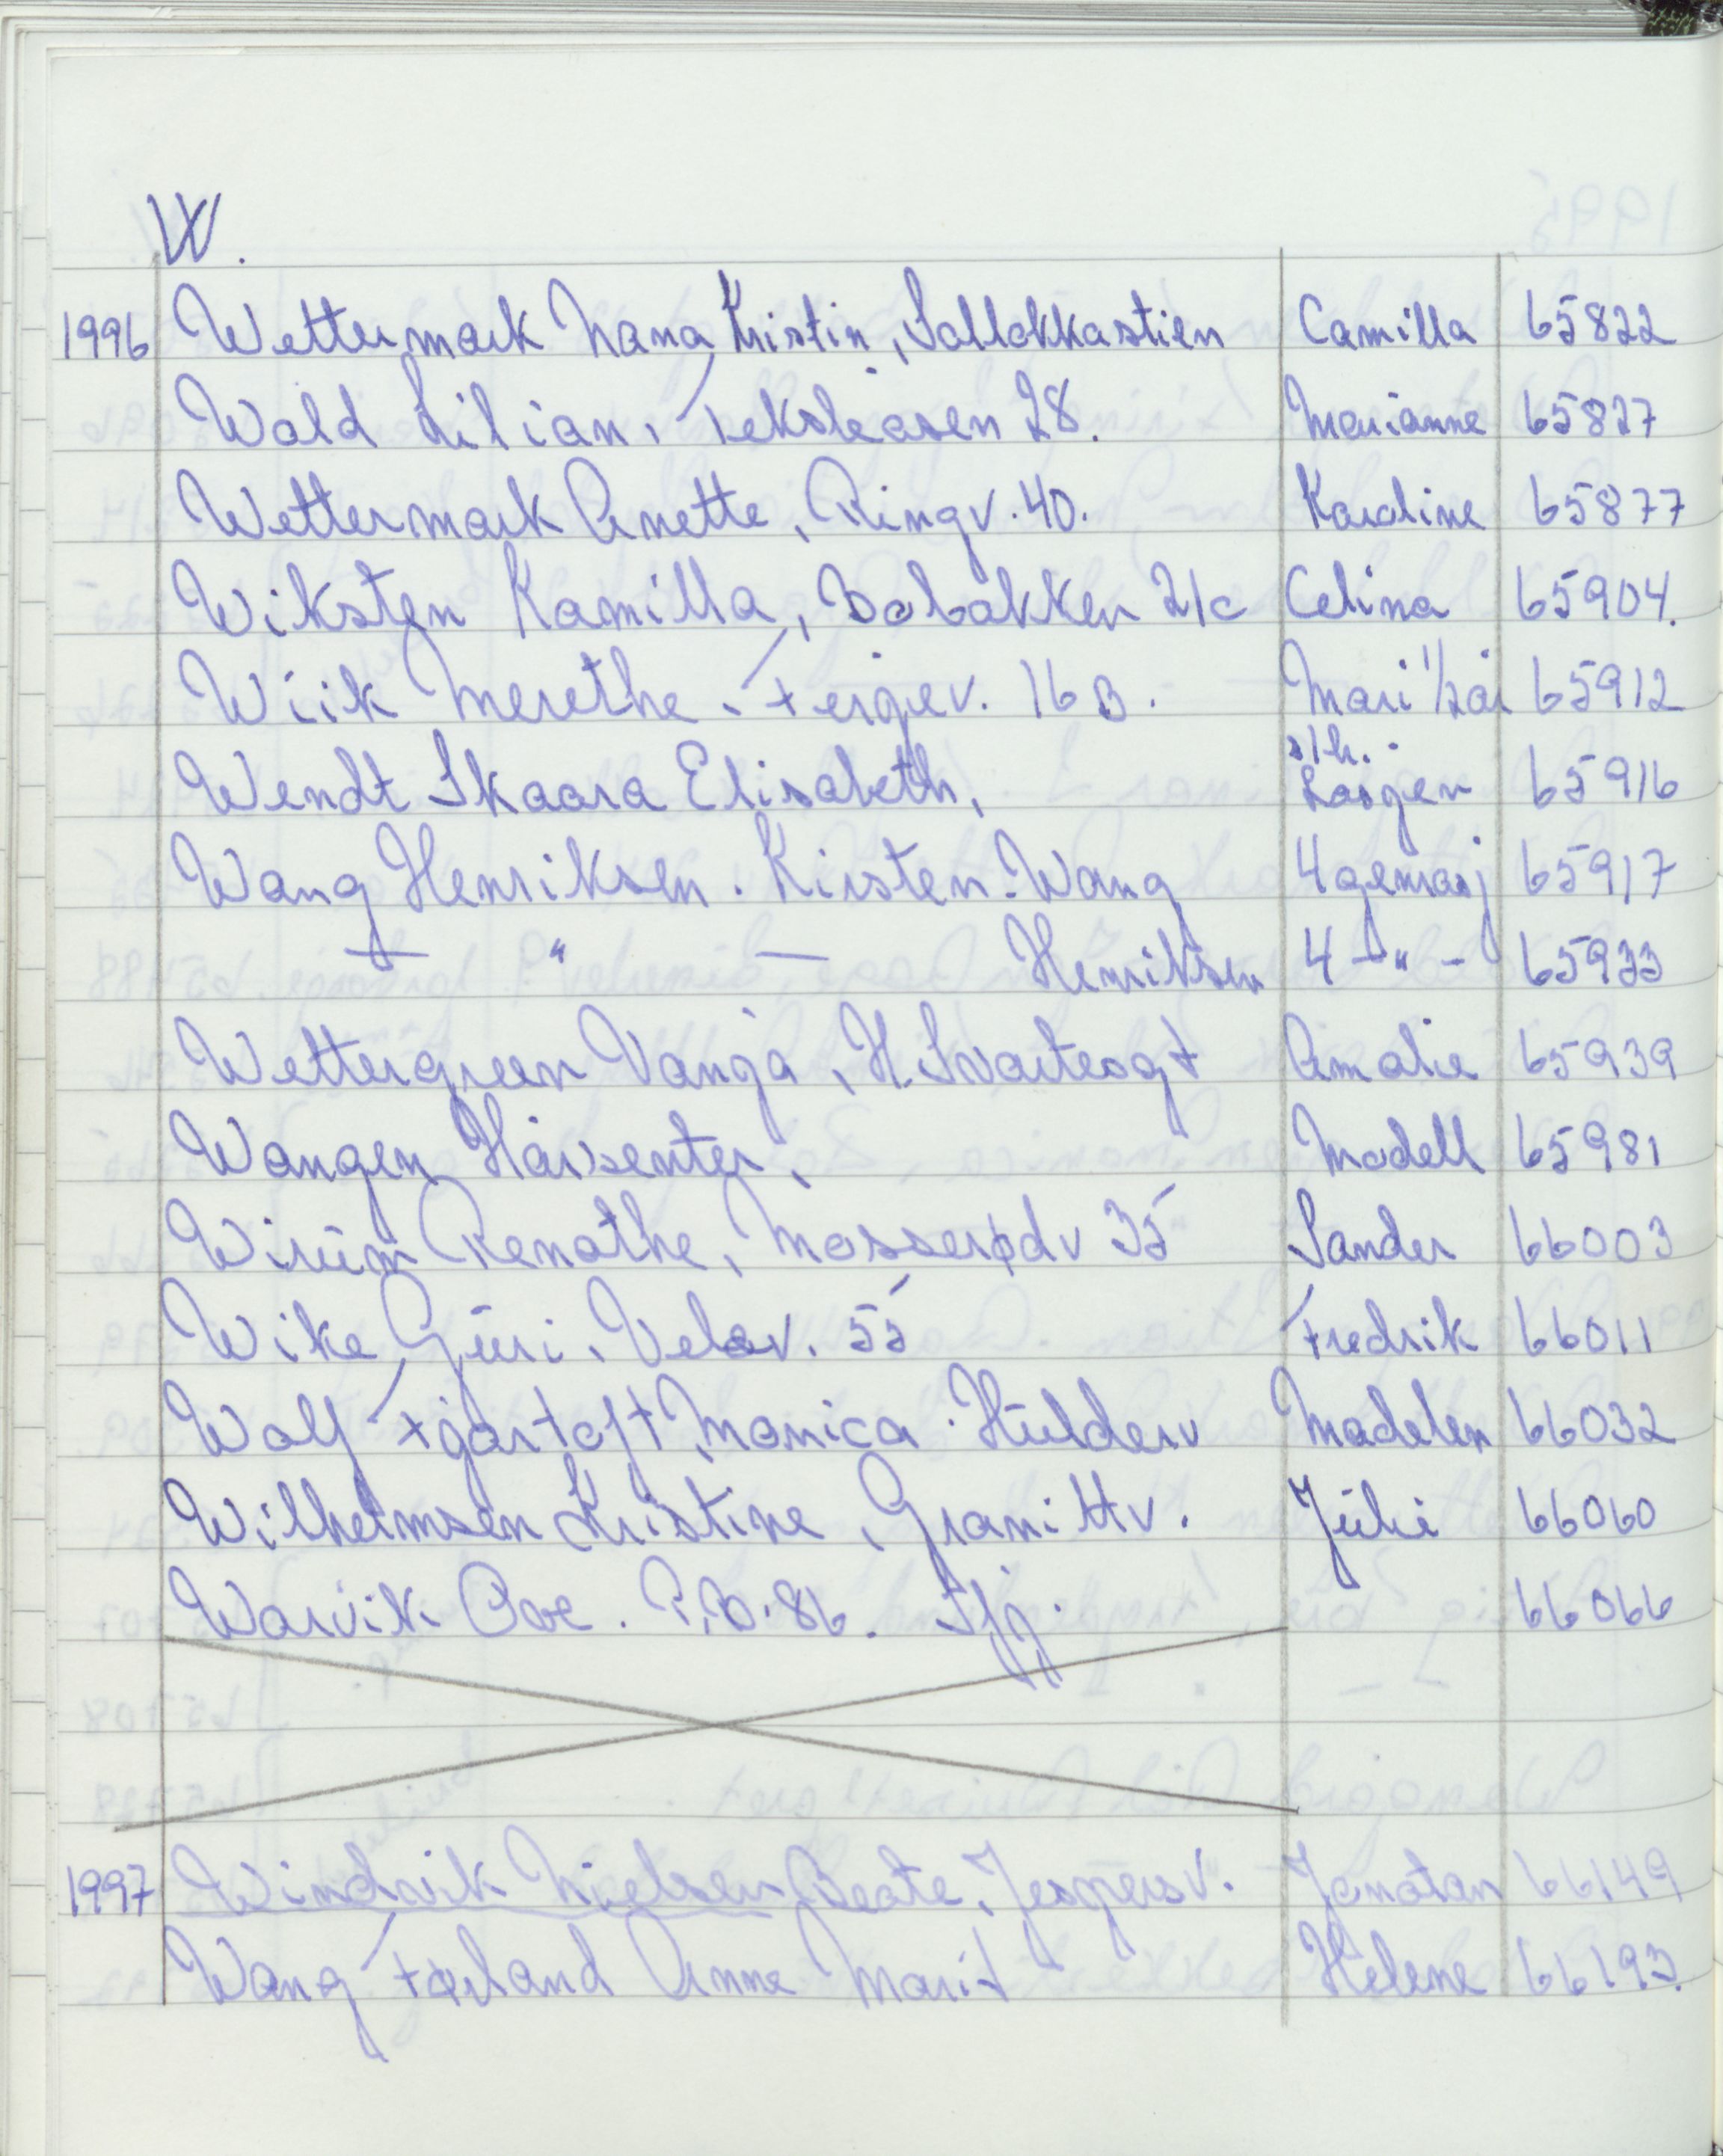 W.
1996 Wettermark Nana Kristin, Sollokkastien Camilla 65822
Wold Lilian, Feksleåsen 28. Marianne 65827
Wettermark Anette, Ringv. 40. Karoline 65877
Wiksten Kamilla, Bobakken 21c Celina 65904.
Wiik Merethe, Fergev. 16 B. Mari 1/2 år 65912
Wendt Skaara Elisabeth, s/h. Lasgen 65916
Wang Henriksen. Kirsten Wang 4 genrasj 65917
— " — Henriksen 4 -"- 65933
Wettergreen Vanja, H. Svartesgt Amalie 65939
Wangen Hårsenter, Modell 65981
Wirum Renathe, Mosserødv 35 Sander 66003
Wike Guri, Velav. 55 Fredrik 66011
Wolf Fjørtoft Monica. Hulderv Madelen 66032
Wilhelmsen Kristine, Granittv. Juli 66060
Warvik Ove. P.B. 86. Sfj. 66066
1997 Windvik Nielsen Beate, Jespersv. Jonatan 66149
Wang Førland Anne Marit Helene 66193.